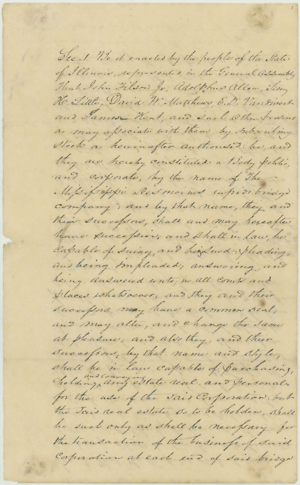 Sec. 1 Be it enacted by the people of the State
of Illinois, represented in the General Assembly
That John Wilson Jr. Adolphus Allen,
H. Little, David W. Matthews,
and James Kent, and such other persons
as may associate with them, by subscribing
stock as hereinafter authorised be, and
they are hereby constituted a Body politic
and corporate, by the name of The
Mississippi rapids bridge
company; and by that name, they and
their successors, shall and may hereafter
have succession, and shall in law, be
capable of suing, and being sued, pleading
and being impleaded, answering and
being answered unto, in all courts and
places whatsoever, and they and their
successors, may have a common seal,
and may alter, and change the same
at pleasure, and also they, and their
successors, by that name and style,
shall be in law capable of purchasing,
holding, and conveying any estate real and personal
for the use of the said Corporation; but
the said real estate so to be holden, shall
be such only as shall be necessary for
the transaction of the business of said
Corporation at each end of said bridge